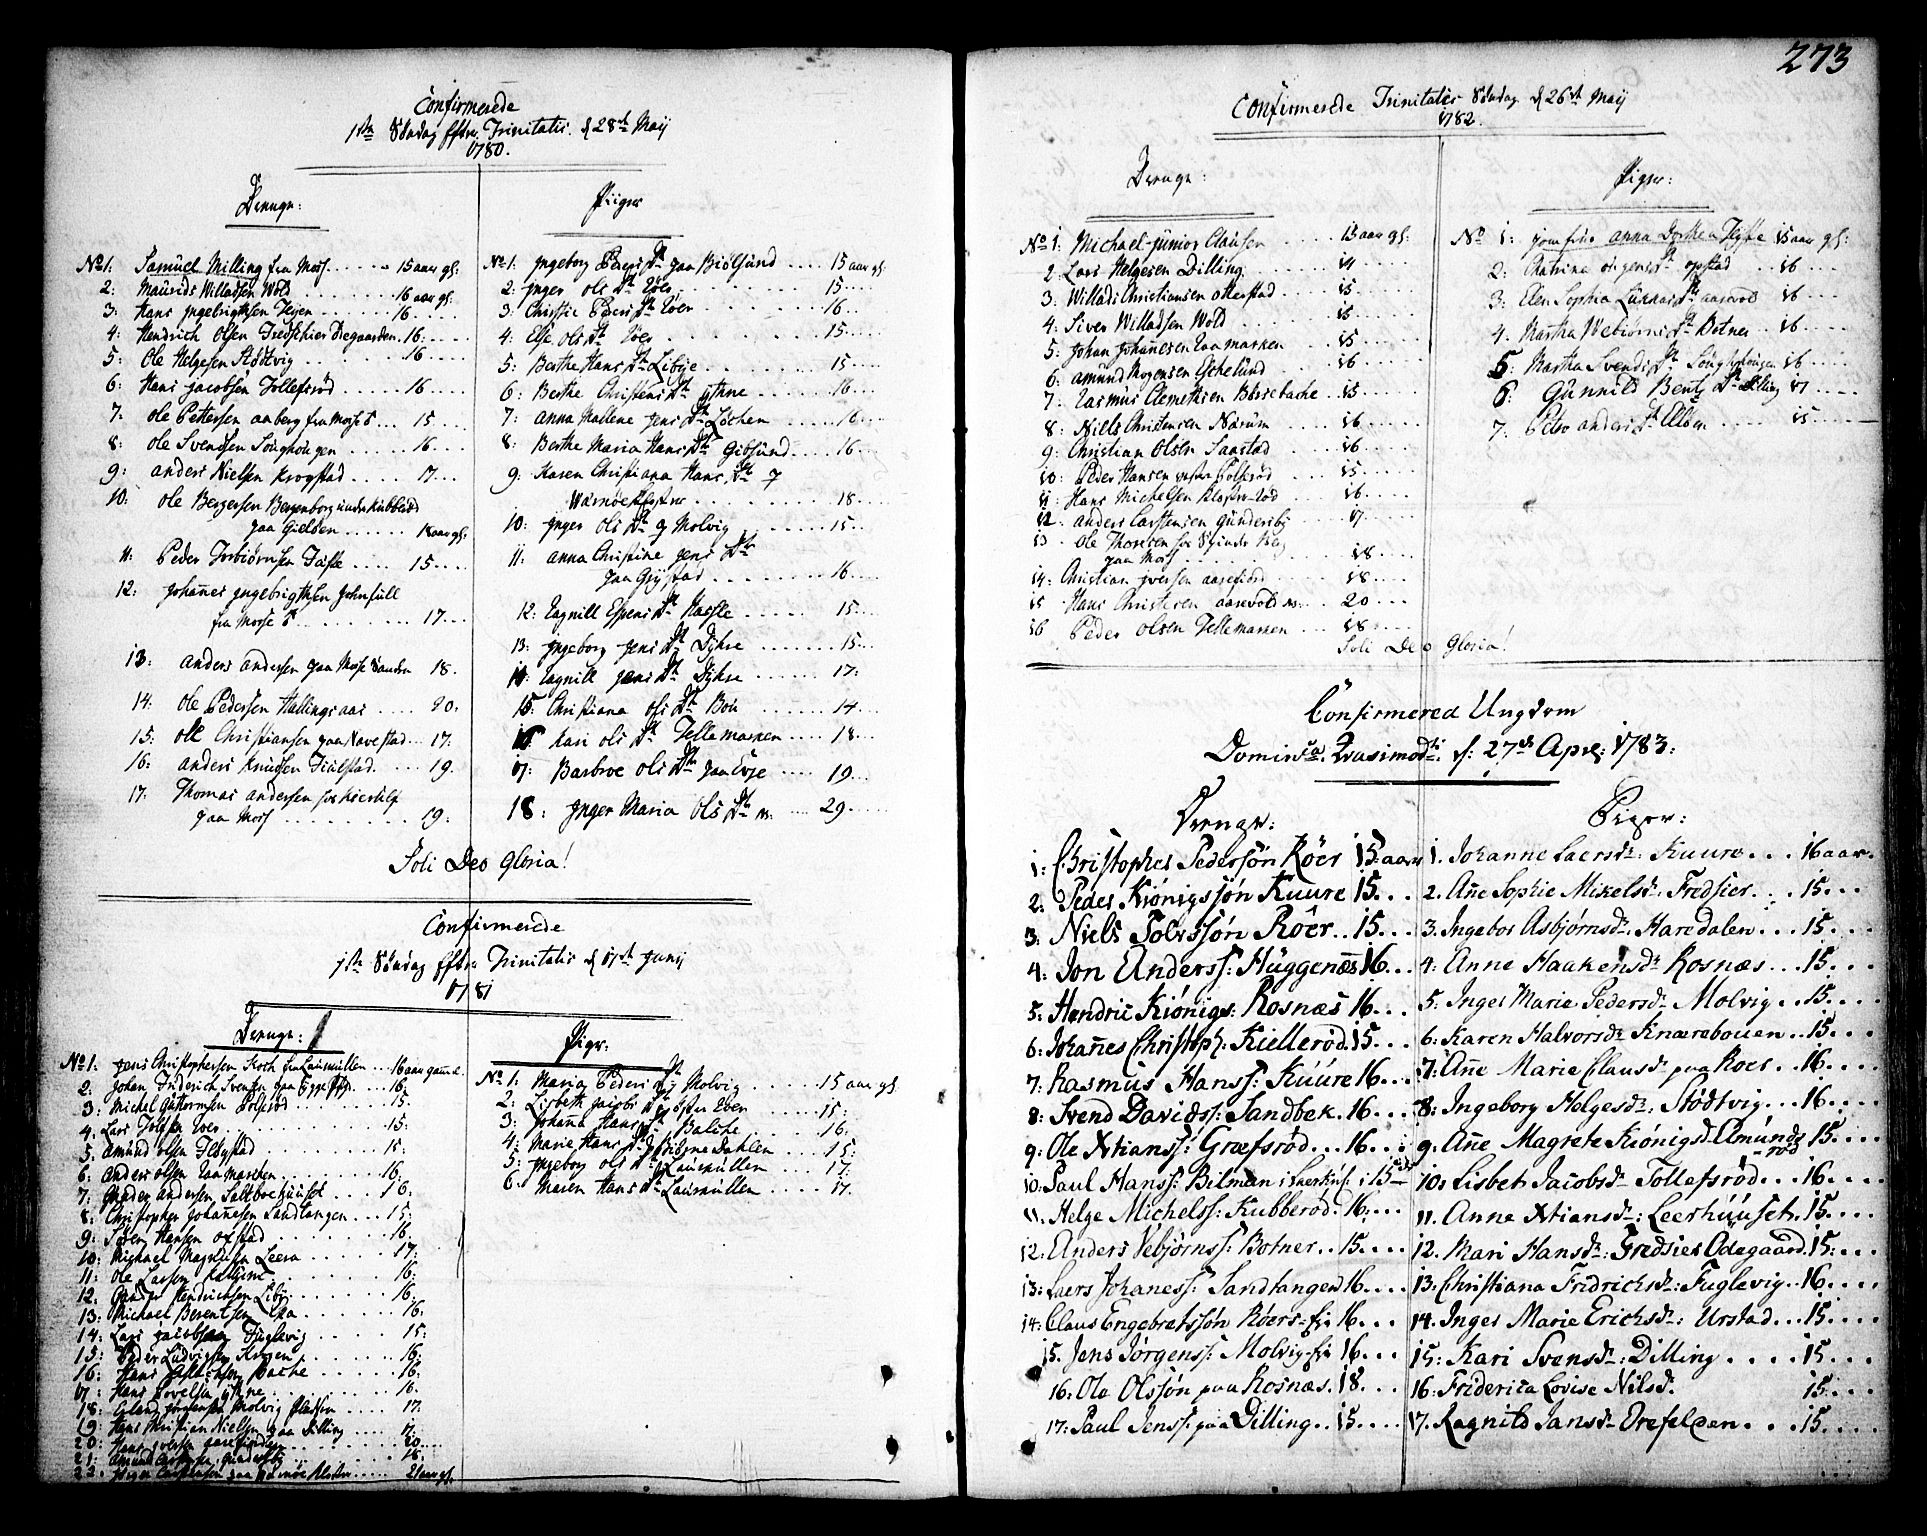 Confirmerede
1ste Søndag efter Trinitatis d 28de Maij
1780.
Drenge:
No 1: Samuel Milling fra Moss 15 aar gl:
2: Mauritz Willadsen Wold 16 aar gl:
3: Hans Ingebrigtsen Vejen 16
4: Hendrich Olsen Fredschier Ødegaarden 16
5: Ole Helgesen Stødtvig 16
6: Hans Jacobsen Tollefsrød 16
7: Ole Pettersen Aaberg fra Mosse 15
8: Ole Svendsen Songhougen 16
9: Anders Nielsen Krogstad 17
10: Ole Bergersen Bergenborg under Kubberød
paa Gieløen 18 aar gl:
11: Peder Torbiørnsen 15
12: Johannes Ingebrigtsen
fra Mosse 17
13: Anders Andersen paa Mosse Sanden 18.
14: Ole Pedersen Hallingsaas 20.
15: Ole Christiansen paa Navestad 17:
16: Anders Knudsen 19.
17: Thomas Andersen
paa Moss 19:
Soli Deo Gloria!
Piiger
No 1: Ingeborg Peders Dtr paa Biølsund 15 aar gl.
2: Inger Ols Dtr Røer 15
3: Christie Peders Dtr Røer 16
4: Else Ols Dtr Røer 15
5: Berthe Hans Dtr Libye 15
6: Berthe Christens Dtr 16
7: Anna Mallene Jens Dtr Løchen 16
8: Berthe Maria Hans Dtr Gibsund 16
9: Karen Christiana Hans Dtr
Wærnøe Kloster 18
10: Inger Ols Dtr Molvig 15
11: Anna Christine Jens Dtr
paa 16
12: Ragnill Espens Dtr 15
13: Ingeborg Jens Dtr Dyhre 15
14: Ragnill Jens Dtr Dyhre 17:
15: Christiana Ols Dtr Boe 14
16: Kari Ols Dtr Tellemarken 18
17: Barbroe Ols Dtr paa Evje 19
18: Inger Maria Ols Dtr 29
Confirmerede
1ste Søndag efter Trinitatis d 17de Junij
1781
Drenge:
No 1: Jens Christophersen Koch fra Laurmüllen 16 aar gaml.
2: Johan Friderich Svensen paa 16
3: Michel Guttormsen Tolfsrød 15
4: Lars Tolfsen Røer 15:
5: Amund Olsen 15:
6: Anders Olsen Raamarken 16:
7: Andersen Saltboehuuset 16:
8: Christopher Johannesen Sandtangen 15:
9: Søren Hansen Oxstad 16.
10: Michael Magnusen Leera 17:
11: Ole Larsen 16:
12: Hendrichsen Libye 16.
13: Michael Berentsen 16.
14: Lars Jacobsen Fuglevig 15:
15: Peder Ludvigsen Krogen 16:
16: Hans Bache 16:
17: Hans 16.
18: Erland Jørgensen Molvig Pladsen 17.
19: Hans Christian Nielsen paa Dilling 17:
20: Hans Iversen 20
21: Amund Carstensen Gundersby 18:
22: paa Wærnøe Kloster 21 aar gl:
Piger:
No 1: Maria Peders Dtr Molvig 15 aar gl.
2: Lisbeth Jacobs Dtr 15:
3: Johanna Hans Dtr Bakke 16:
4: Marie Hans Dtr 15:
5: Ingeborg Ols Dtr Laurmüllen 17:
6: Maren Hans Dtr Laurmüllen 17.
273
Confirmerede Trinitatis Søndag d 26de Maij
1782.
Drenge:
No 1: Michael Junior Clausen 15 aar gl:
2: Lars Helgesen Dilling 14
3: Willads Christiansen Otterstad 15
4: Siver Willadsen Wold 15
5: Johan Johannesen Raamarken 15
6: Amund Mogensen Eschelund 16
7: Rasmus Clemetsen Børsebache 15
8: Niels Christensen Narum 16
9: Christian Olsen Saastad 16
10: Peder Hansen Tolfsrød 15
11: Hans Michelsen Kloster-rød 16
12: Anders Carstensen Gundersby 17
13: Ole Thoresen
paa Moss 18
14: Christian Iversen 18
15: Hans Christensen Aarevold 20
16: Peder Olsen Tellemarken 18
Soli Deo Gloria!
Piger:
No 1: Jomfrue Anna Dorthea Hyffe 15 aar gl:
2: Cathrine Opstad 16
3: Elen Sophia Aarvold 16
4: Martha Webiørns Dtr Botner 16
5: Martha Svends Dtr Songhougen 16
6: Gunnild Bents Dtr Dilling 17
7: Anders Dtr 15
Confirmered Ungdom
Dominica Quasimod: d: 27de Apr: 1783:
Drenge:
1: Christopher Pedersøn Röer 15: aar
2: Peder Kiönigssøn Kuure 15
3: Niels Tolvssøn Röer 15
4: Jon Anderss: Huggenæs 16
5: Hendric Kiönigs: Rosnæs 16
6: Johannes Christoph: Kiellerød 15
7: Rasmus Hanss: Kuure 16
8: Svend Davidss: Sandbek 16
9: Ole Xtianss: Græfsrød 16
10: Paul Hanss: Bilman i 15
11: Helge Michelss: Kubberød 16
12: Anders Vebjørnss: Botner 15
13: Laers Johaness: Sandtangen 16
14: Claus Engebretssøn Röers-eje 16
15. Jens Jörgenss: Molvig-eje 16
16: Ole Olssøn paa Rosnæs. 18
17: Paul Jenss: paa Dilling 15
Piger:
1. Johanne Laersdr: Kuure 16 aar.
2. Ane Sophie Mikelsdr: Fredsier 15
3. Ingebor Asbjørnsdr: Haredalen 15
4: Anne Haakensdr Rosnæs 15
5: Inger Marie Pedersdr Molvig 15
6: Karen Halvorsdr Knærebouen 15
7: Ane Marie Clausdr paa Roer 16
8: Ingeborg Helgesdr: Stödtvig 16
9: Ane Magrete Kiönigsd: Amunds
-rød 15
10: Lisbet Jacobsdr Tollefsrød 16
11. Anne Xtiansdr: Leerhuuset 15
12. Mari Hansdr: Fredsier Ödegaard 15:
13: Christiana Fridricksdr: Fuglevig 16
14. Inger Marie Ericksdr: Urstad 15
15: Kari Svensdr: Dilling 15
16: Friderica Lovise Nilsdr 15
17. Ragnild Jansdr Orefeloen 15